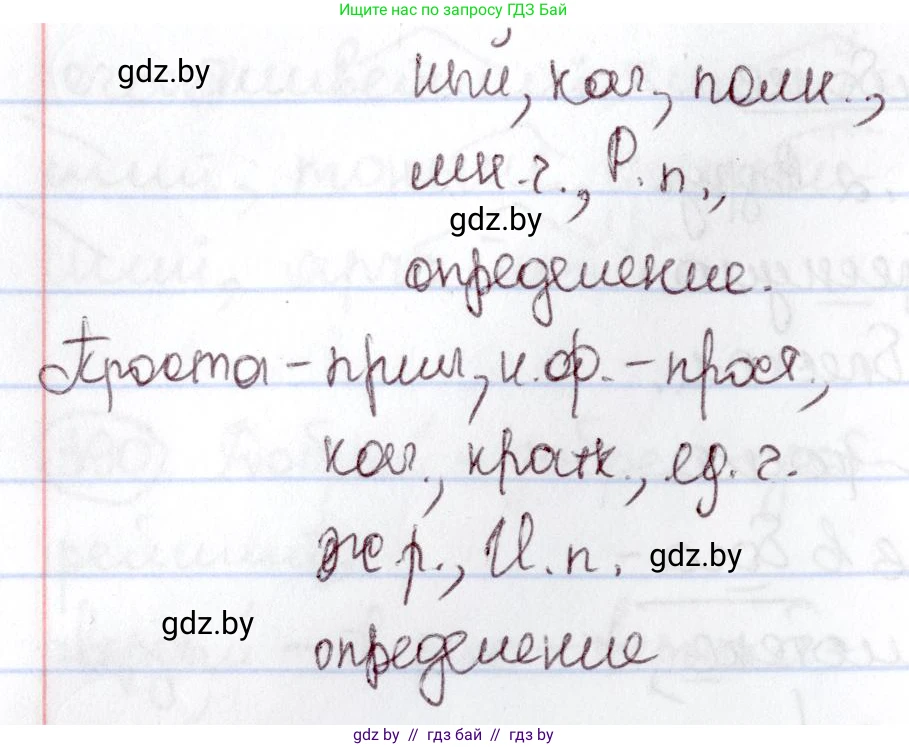 Ищите нас по запросу ГДЗ Бай
gdz.by
ный, кач., полн.,
мн.ч., Р.п.,
gdz.by
определение.
Проста – прил, н.ф. – прост,
кач., кратк., ед.ч.
ж.р., И.п.
gdz.by
gdz.by
определение
gdz.by // гдз бай // гдз by